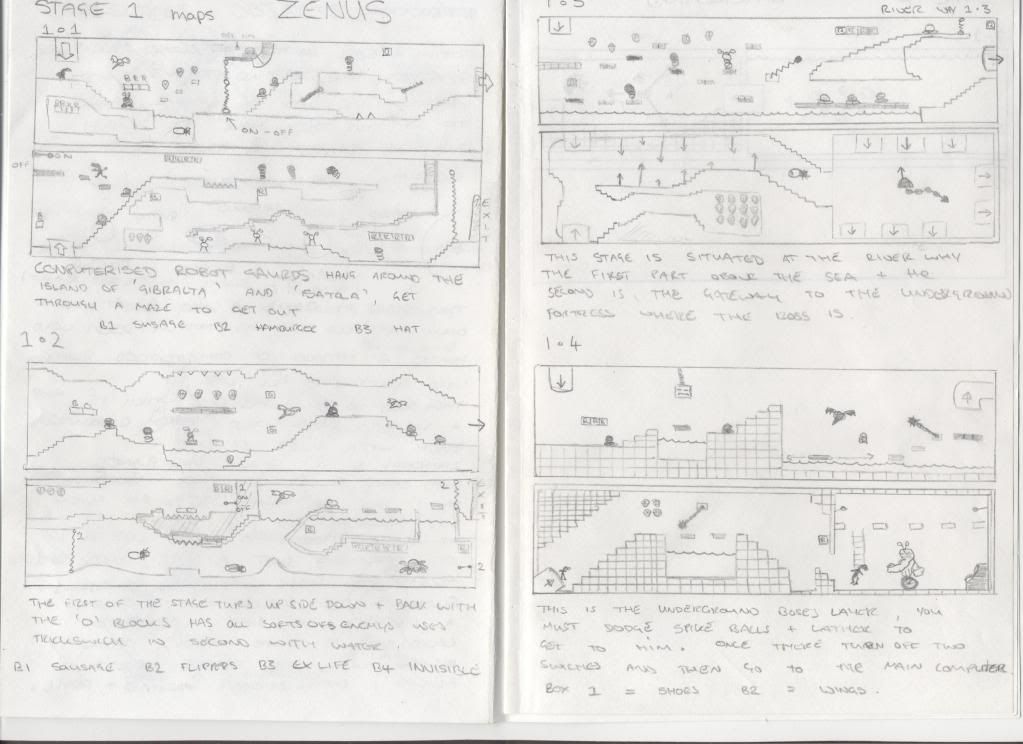 STAGE 1 maps ZENUS
1·1
ON-OFF
OFF
ON
EXIT
COMPUTERISED ROBOT GAURDS HANG AROUND THE
ISLAND OF 'GIBRALTA' AND GET
THROUGH A MAZE TO GET OUT
B1 SUSAGE B2 HAMBURGER B3 HAT
1·2
1
ON
OFF
2
EXIT
1
2
THE FIRST OF THE STAGE TURS UP SIDE DOWN + BACK WITH
THE 'O' BLOCKS HAS ALL SORTS OFS ENEMYS USES
IN SECOND WITH WATER.
B1 SAUSAGE B2 FLIPPERS B3 EX LIFE B4 INVISIBLE
1·3
RIVER WY 1·3
THIS STAGE IS SITUATED AT THE RIVER WHY
THE FIRST PART ABOVE THE SEA + THE
SECOND IS THE GATEWAY TO THE UNDERGROUND
FORTRESS WHERE THE BOSS IS.
1·4
THIS IS THE UNDERGROUND BOSES LAYER, YOU
MUST DODGE SPIKE BALLS + TO
GET TO HIM. ONCE THERE TURN OFF TWO
SWICHES AND THEN GO TO THE MAIN COMPUTER.
BOX 1 = SHOES B2 = WINGS.